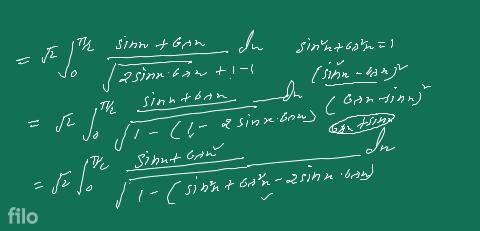 = √2 ∫₀^{π/2} (sinx + cosx) / √(2sinx·cosx + 1 - 1) dx    sin²x + cos²x = 1
(sinx - cosx)²
= √2 ∫₀^{π/2} (sinx + cosx) / √(1 - (1 - 2sinx·cosx)) dx    (cosx - sinx)²
cosx + sinx
= √2 ∫₀^{π/2} (sinx + cosx) / √(1 - (sin²x + cos²x - 2sinx·cosx)) dx
filo